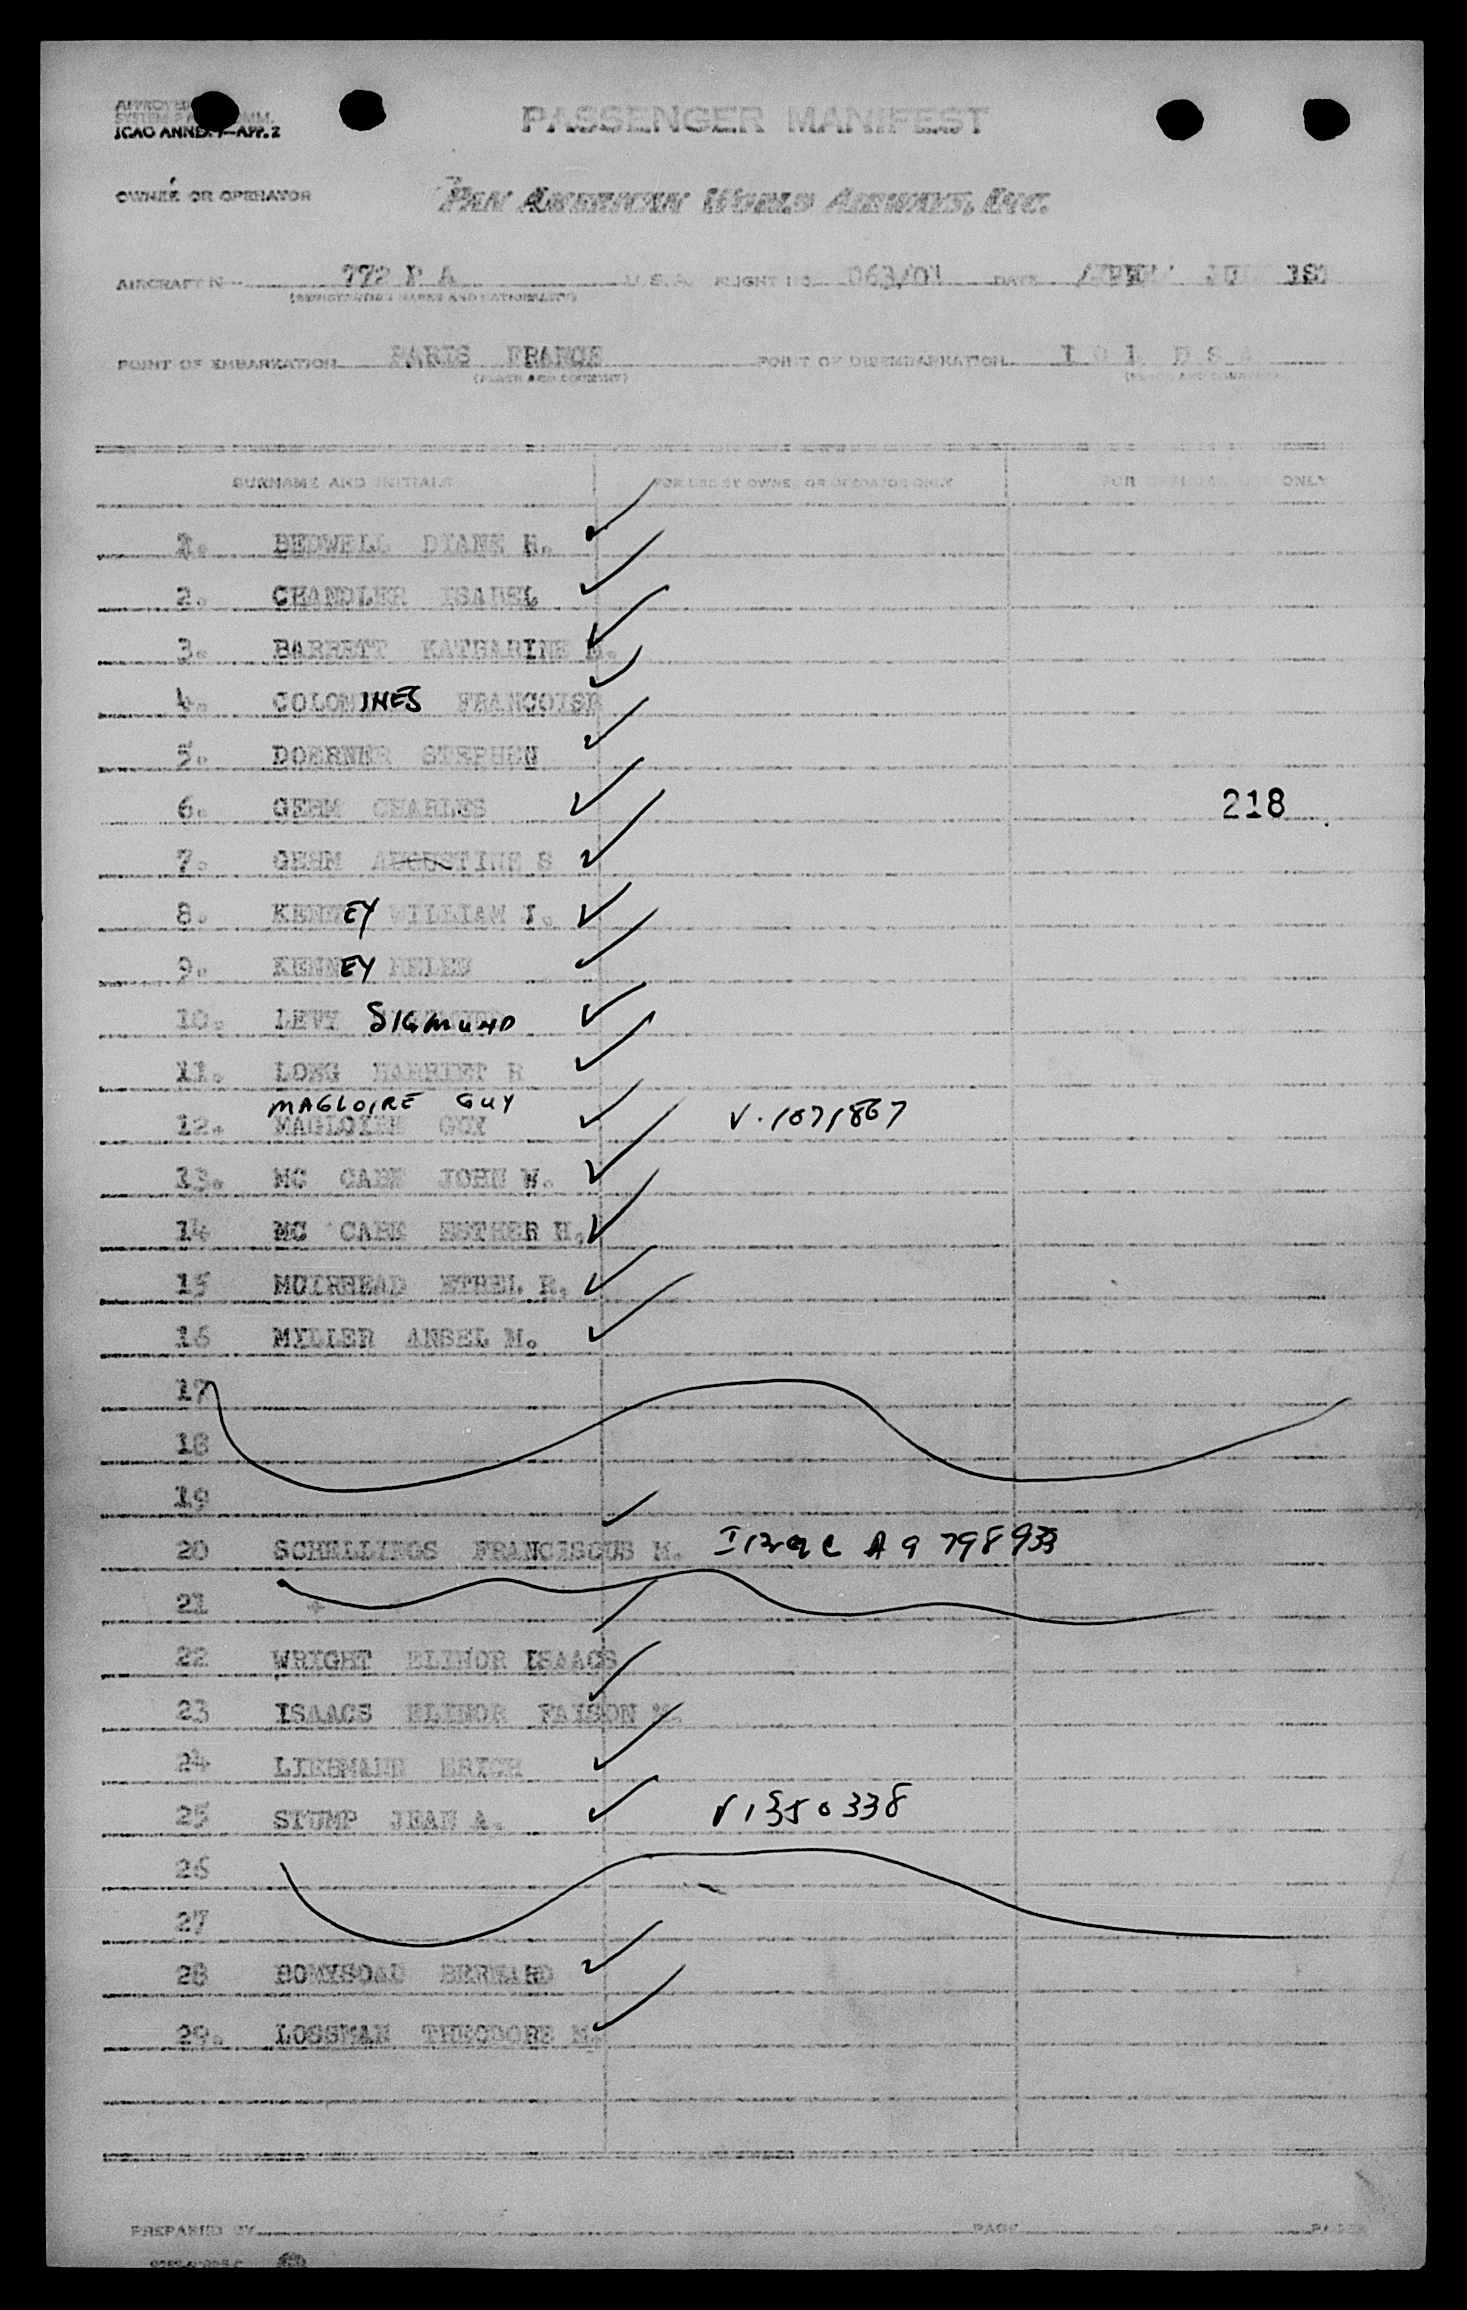 APPROVED
SYSTEM COMM.
ICAO ANNEX 9—APP. 2
PASSENGER MANIFEST
OWNER OR OPERATOR PAN AMERICAN WORLD AIRWAYS, INC.
AIRCRAFT N 772 P A U.S.A. FLIGHT NO. 063/01 DATE
(REGISTRATION MARKS AND NATIONALITY)
POINT OF EMBARKATION PARIS FRANCE POINT OF DISEMBARKATION I D L U S A
(PLACE AND COUNTRY) (PLACE AND COUNTRY)
SURNAME AND INITIALS FOR USE BY OWNER OR OPERATOR ONLY FOR OFFICIAL USE ONLY
1. BEDWELL DIANE H.
2. CHANDLER ISABEL
3. BARRETT KATHARINE
4. COLOMINES FRANCOISE
5. DOERNER STEPHEN
6. GEHM CHARLES 218
7. GEHM AUGUSTINE S
8. KENNEY WILLIAM I.
9. KENNEY HELEN
10. LEVY SIGMUND
11. LONG HARRIET R
MAGLOIRE GUY
12. MAGLOIRE GUY V. 1071867
13. MC CABE JOHN W.
14 MC CABE ESTHER H.
15 MUIRHEAD ETHEL R.
16 MILLER ANSEL M.
17
18
19
20 SCHELLINGS FRANCISCUS M. A 9 798 933
21
22 WRIGHT ELINOR ISAACS
23 ISAACS ELINOR FAISON M.
24 LIEBMANN ERICH
25 STUMP JEAN A. V 1350338
26
27
28 BERNARD
29. LOSSMAN THEODORE M.
PREPARED BY PAGE OF PAGES